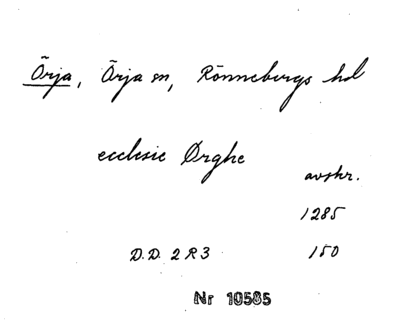 Örja, Örja sn, Rönnebergs hd
ecclesie Ørghe
avskr.
1285
D.D. 2 R 3 150
Nr 10585